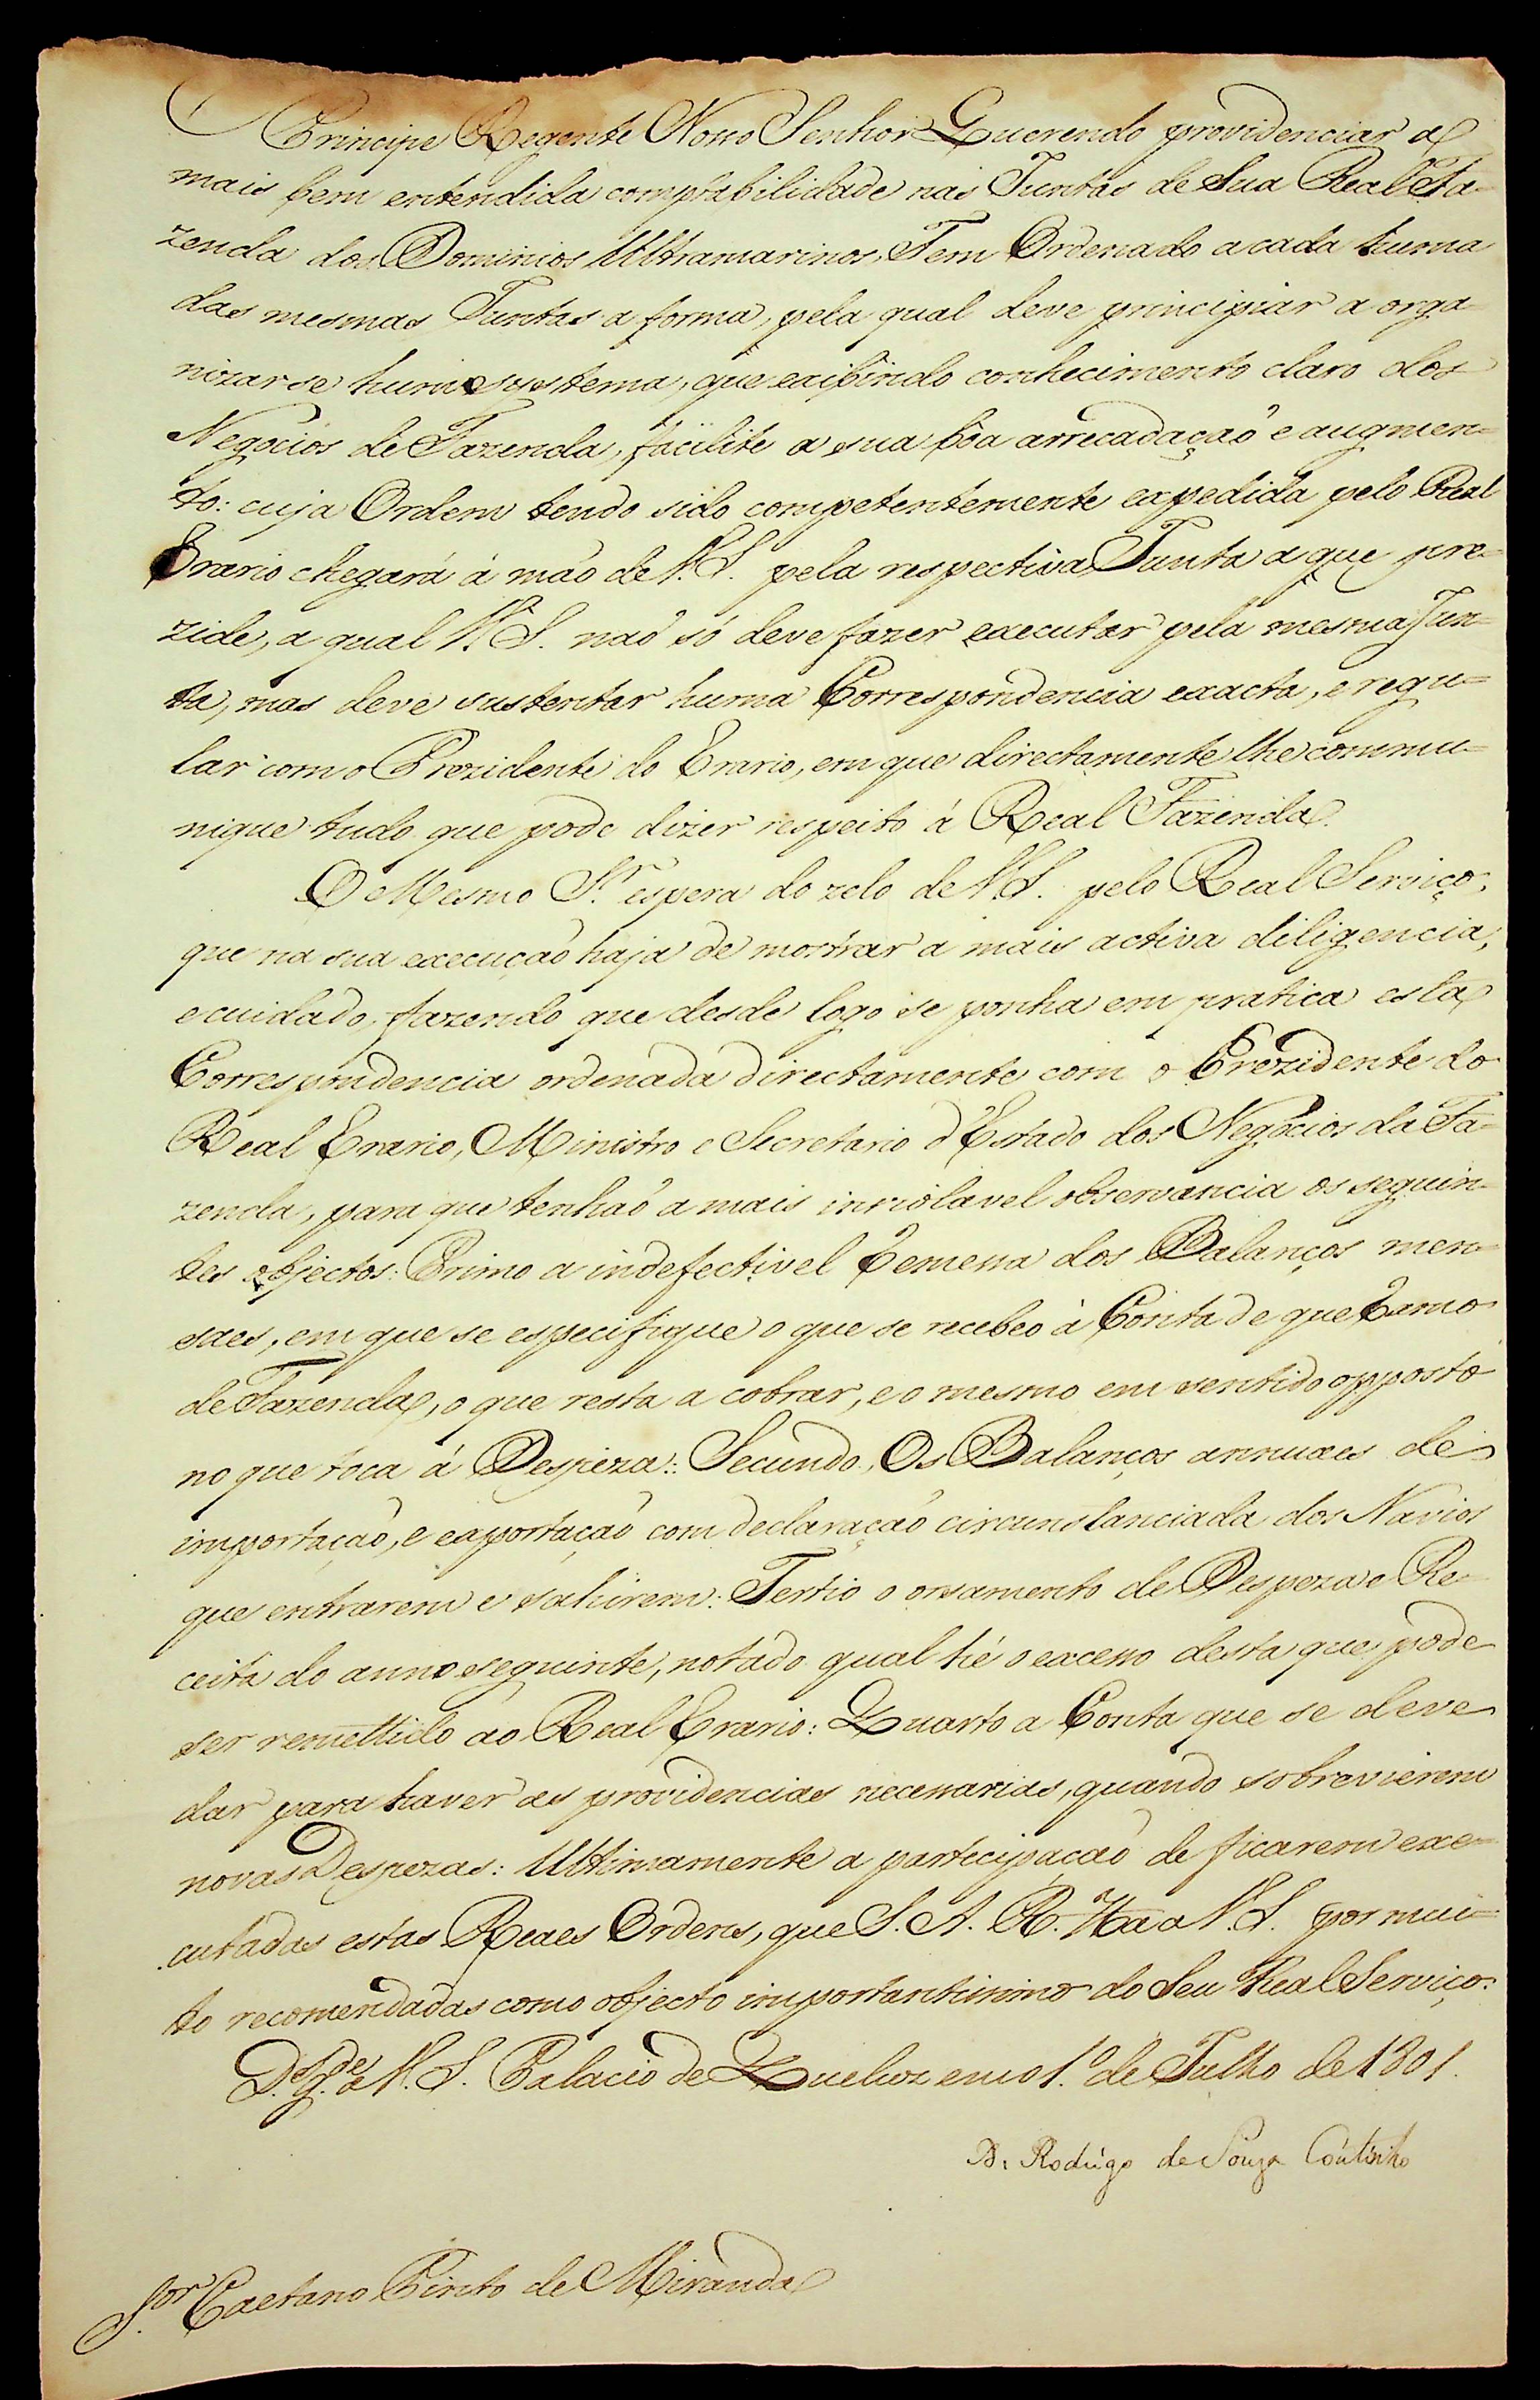 O Principe Regente Nosso Senhor Querendo providenciar a
mais bem entendida comptabilidade nas Juntas de Sua Real Fa=
zenda dos Dominios Ultramarinos, Tem Ordenado a cada huma
das mesmas Juntas a forma, pela qual deve principiar a orga=
nizar se hum systema, que exibindo conhecimento claro dos
Negocios de Fazenda, facilite a sua bôa arrecadaçaõ e augmen=
to: cuja Ordem tendo sido competentemente expedida pelo Real
Erario chegará á maõ de V. S. pela respectiva Junta a que pre=
zide, a qual V. S. naõ só deve fazer executar pela mesma Jun=
ta, mas deve sustentar huma Correspondencia exacta, e regu=
lar com o Prezidente do Erario, em que directamente lhe commu=
nique tudo que pode dizer respeito á Real Fazenda.
O Mesmo Sr. espera do zelo de V. S. pelo Real Serviço,
que na sua execuçaõ haja de mostrar a mais activa diligencia,
e cuidado, fazendo que desde logo se ponha em pratica esta
Correspondencia ordenada directamente com o Prezidente do
Real Erario, Ministro e Secretario d'Estado dos Negocios da Fa=
zenda, para que tenhaõ a mais inviolavel observancia os seguin=
tes objectos: Primo a indefectivel Remessa dos Balanços men=
saes, em que se especifique o que se recebeo á Conta de que Ramo
de Fazenda, o que resta a cobrar, e o mesmo em sentido opposto
no que toca á Despeza: Secundo, Os Balanços annuaes de
importaçaõ, e exportaçaõ com declaraçaõ circunstanciada dos Navios
que entrarem e sahirem: Tertio o orsamento de Despeza e Re=
ceita do anno seguinte, notado qual hé o excesso desta que pode
ser remettido ao Real Erario: Quarto a Conta que se deve
dar para haver as providencias necessarias, quando sobrevierem
novas Despezas: Ultimamente a participaçaõ de ficarem exe=
cutadas estas Reaes Ordens, que S. A. R. Ha a V. S. por mui=
to recomendadas como objecto importantissimo do Seu Real Serviço.
Ds. gde. a V. S. Palacio de Queluz em o 1.º de Julho de 1801.
D. Rodrigo de Souza Coutinho
Sor. Caetano Pinto de Miranda